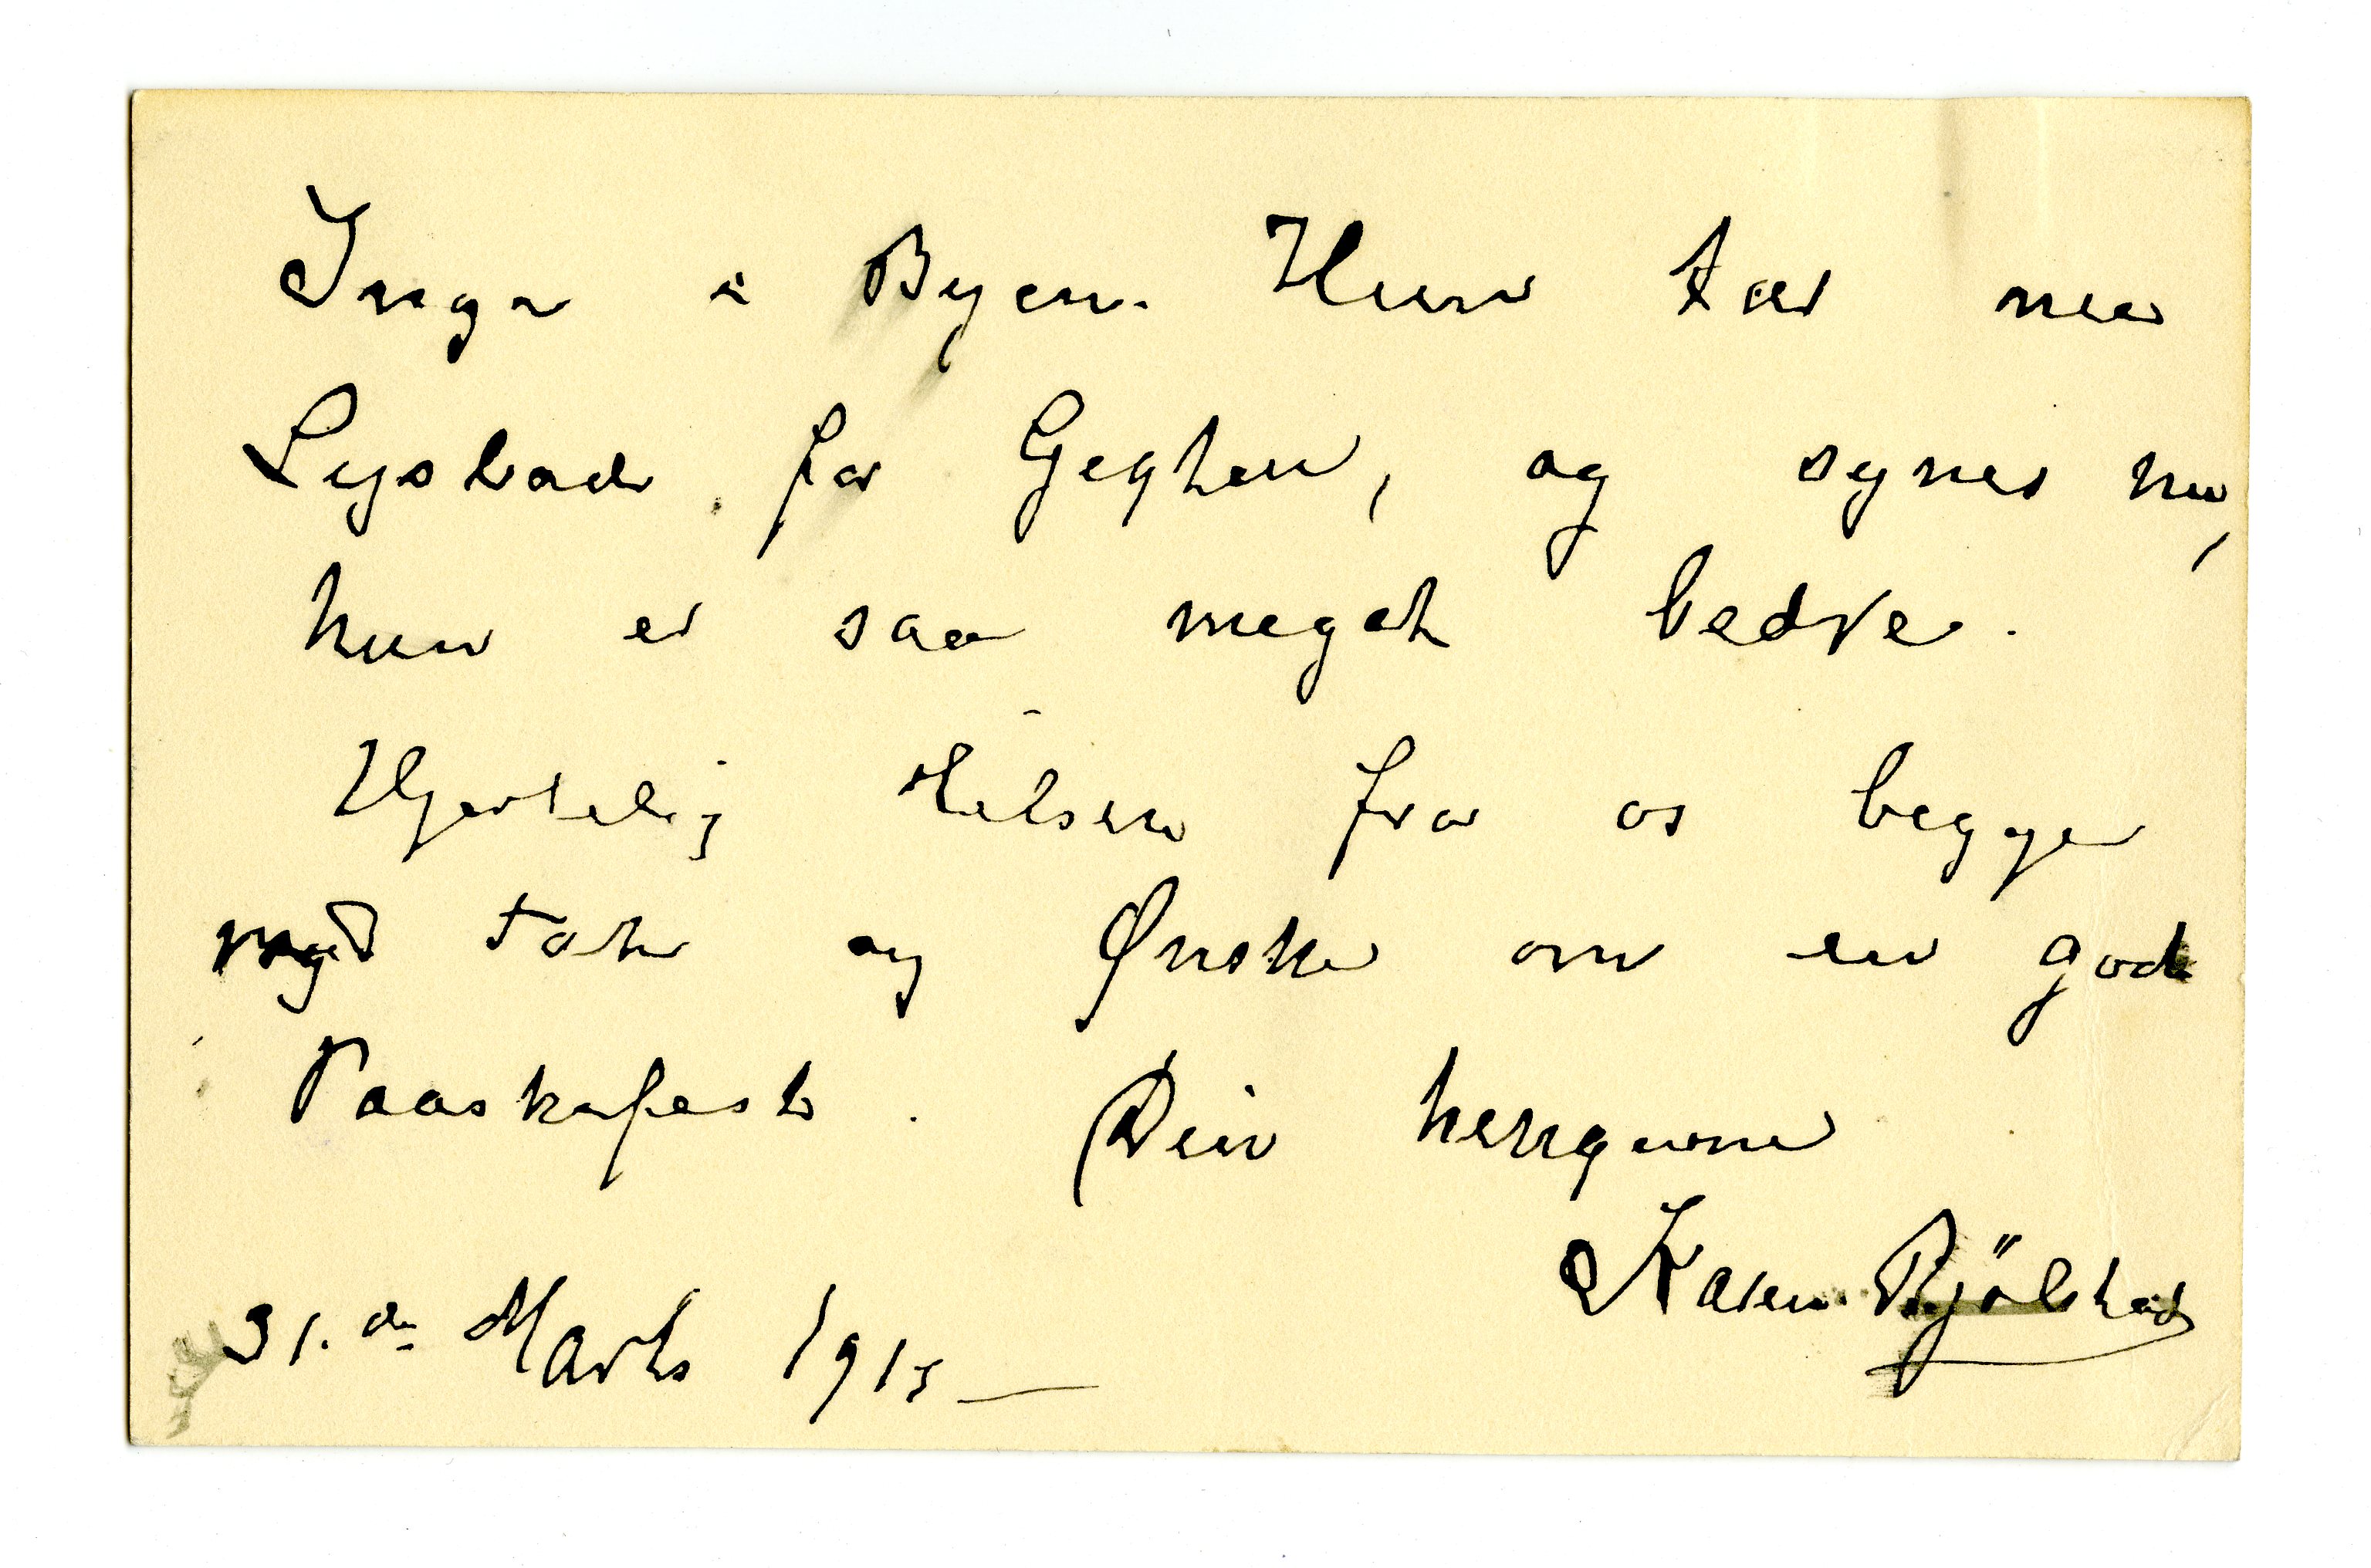 Inga i Byen. Hun tar nu
Lysbad for Gigten, og synes nu,
hun er saa meget bedre.
Hjertelig Hilsen fra os begge
med Tak og Ønske om en god
Paaskefest. Din hengivne
Karen Bjölstad
31.de Marts 1915